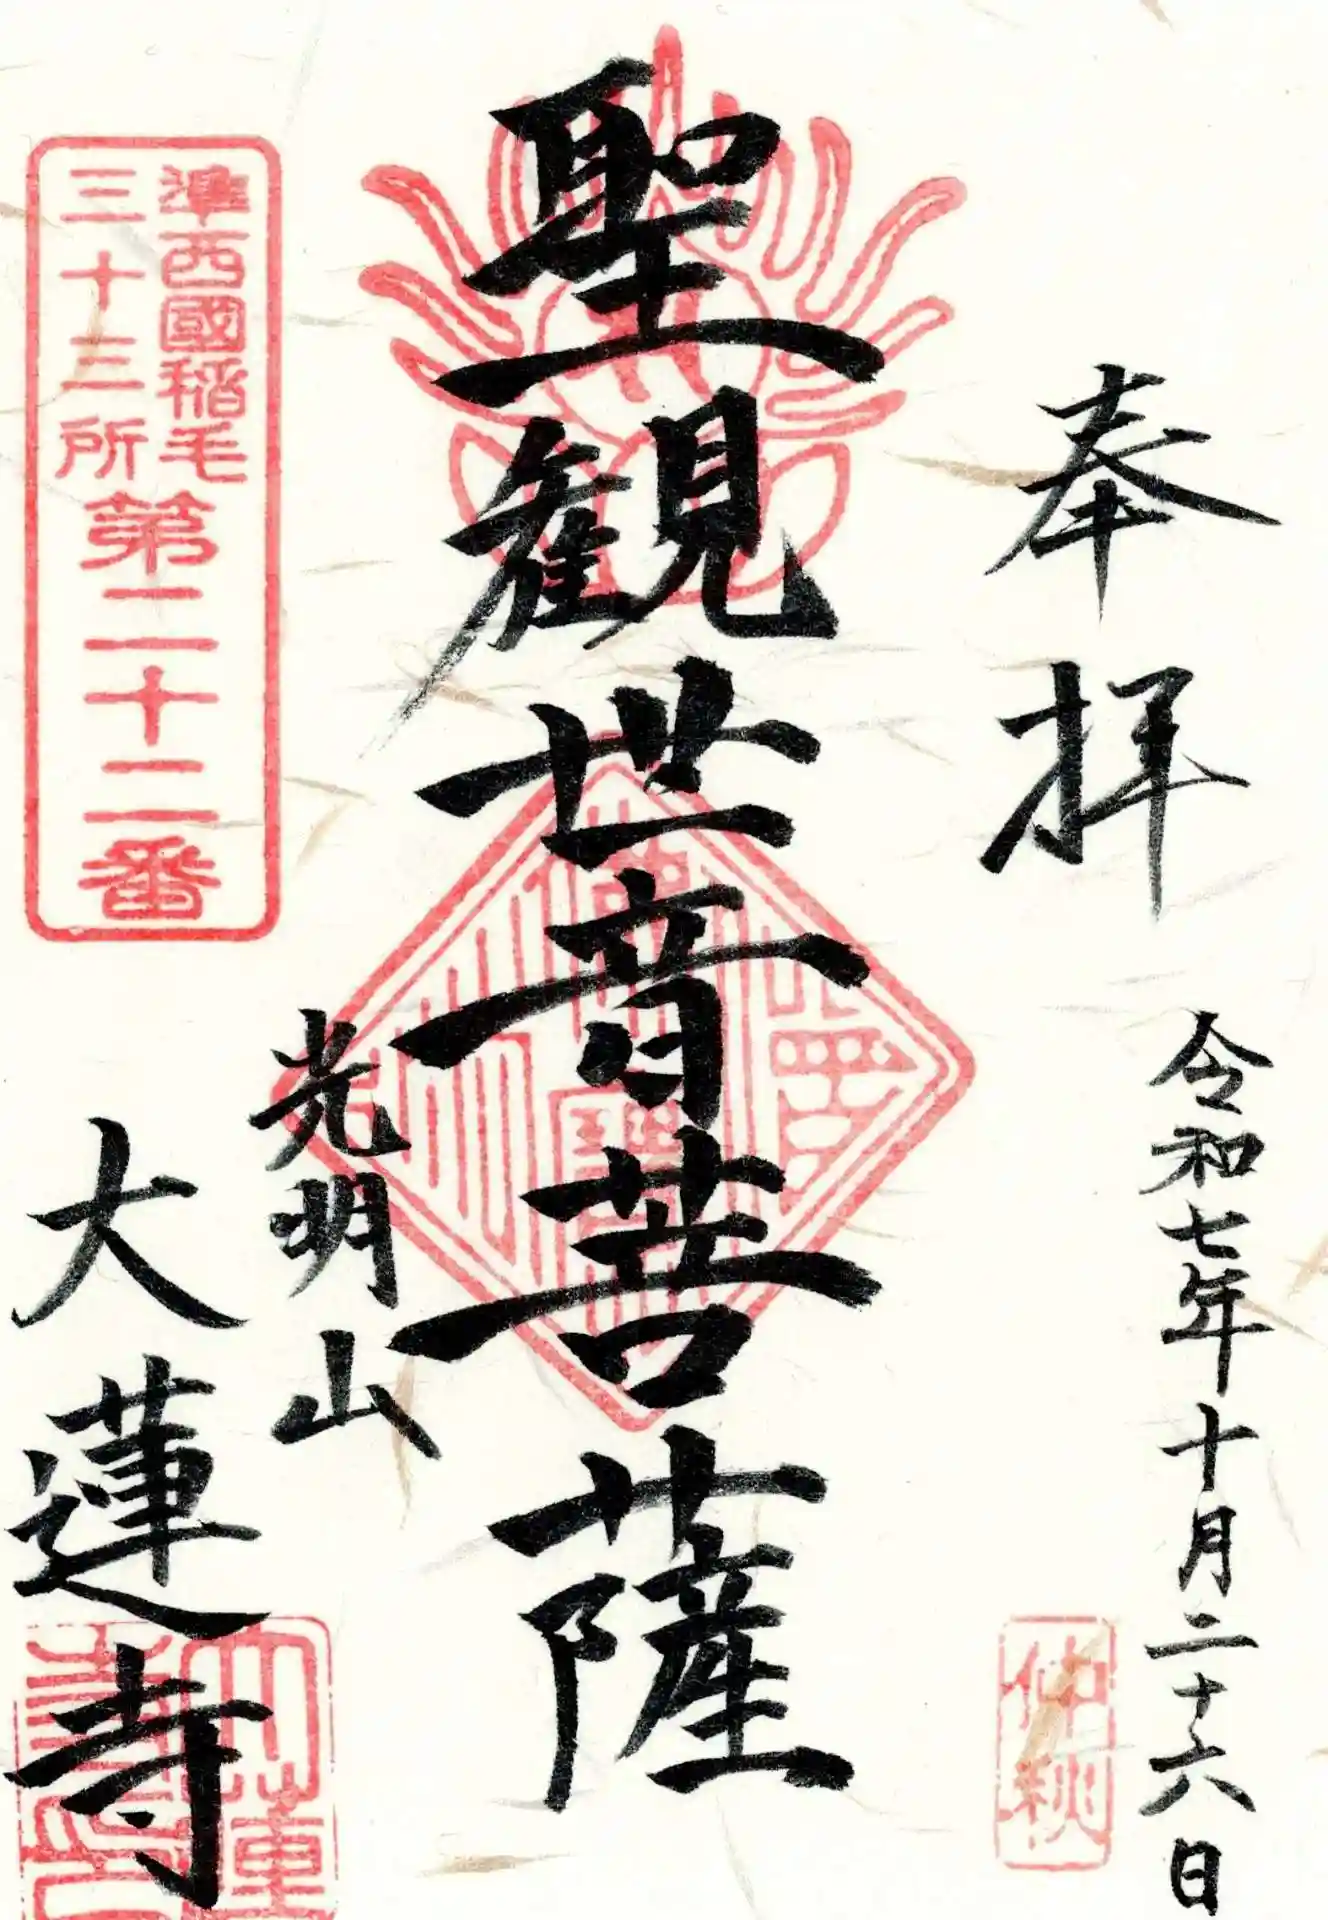 奉拝
令和七年十月二十六日
仲秋
聖観世音菩薩
光明山
大蓮寺
準西國稲毛
三十三所
第二十二番